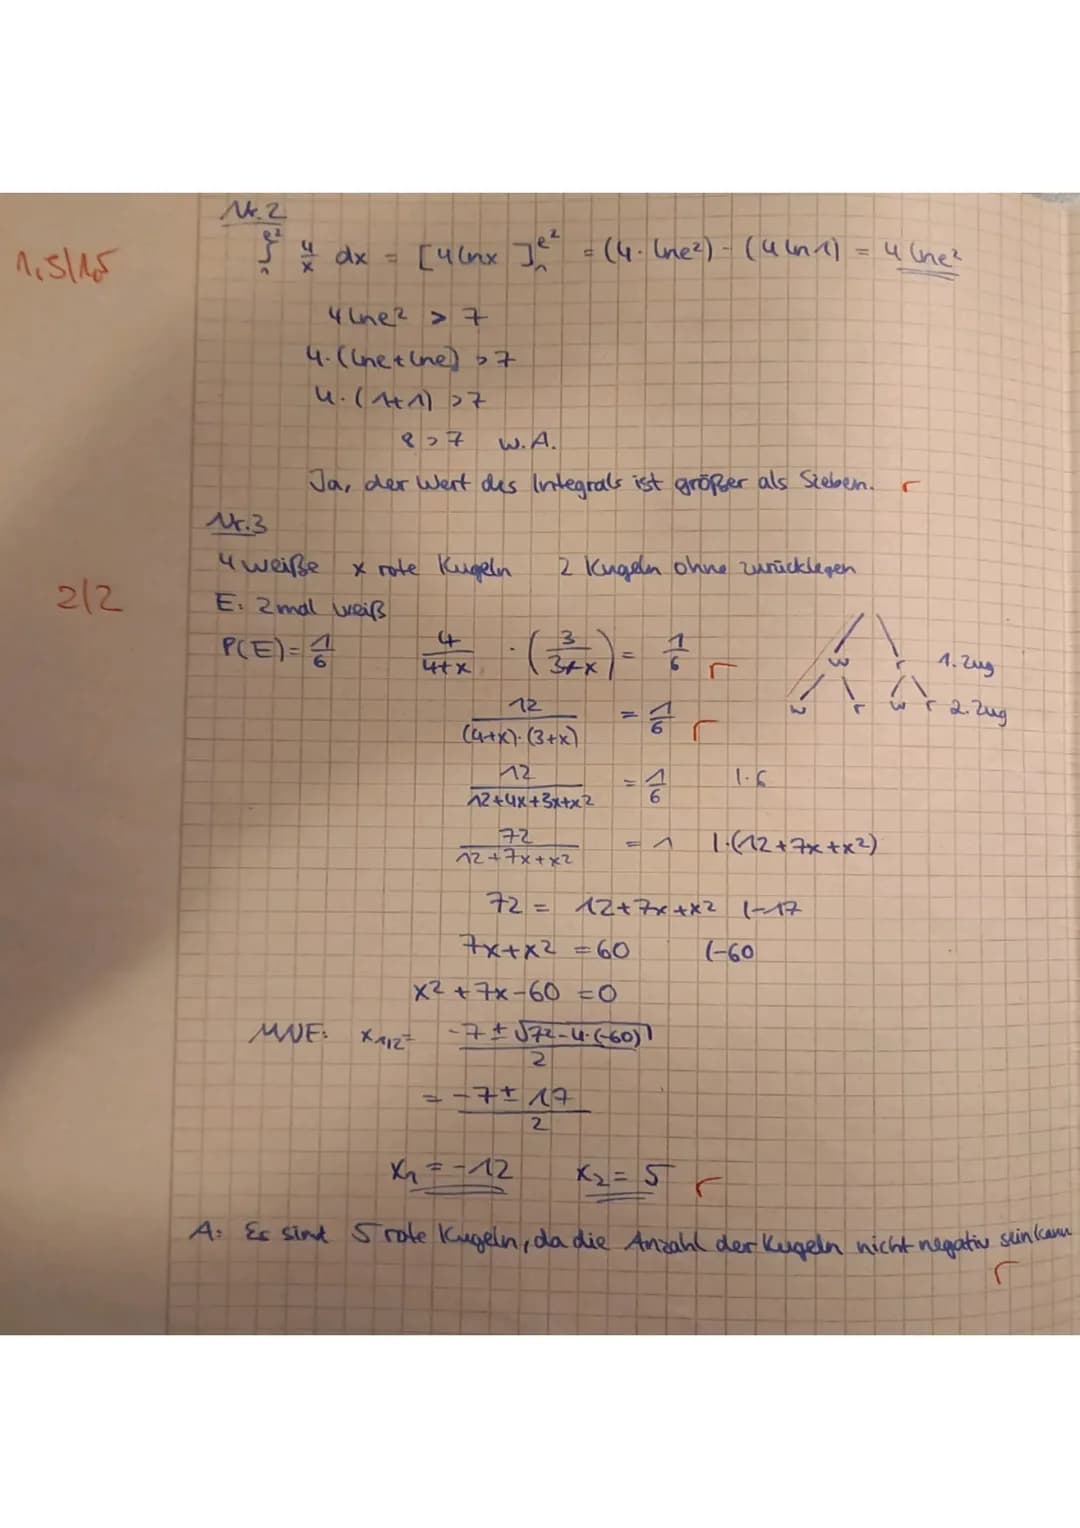 Nr. 2
1,5/1,5
∫₁^e² 4/x dx = [4lnx]₁^e² = (4·lne²) - (4ln1) = 4lne²
4lne² > 7
4·(lne+lne) > 7
4·(1+1) > 7
8 > 7 w.A.
Ja, der Wert des Integrals ist größer als Sieben. r
Nr.3
4 weiße x rote Kugeln 2 Kugeln ohne zurücklegen
2/2
E: 2mal weiß
P(E) = 1/6 4/(4+x) · (3/(3+x)) = 1/6 r
w r 1. Zug
w r w r 2. Zug
12/((4+x)·(3+x)) = 1/6 r
12/(12+4x+3x+x²) = 1/6 |·6
72/(12+7x+x²) = 1 |·(12+7x+x²)
72 = 12+7x+x² |-17
7x+x² = 60 |-60
x²+7x-60 = 0
MNF: x₁,₂ = (-7 ± √(7²-4·(-60)))/2
= (-7 ± 17)/2
x₁ = -12 x₂ = 5 r
A: Es sind 5 rote Kugeln, da die Anzahl der Kugeln nicht negativ sein kann
r